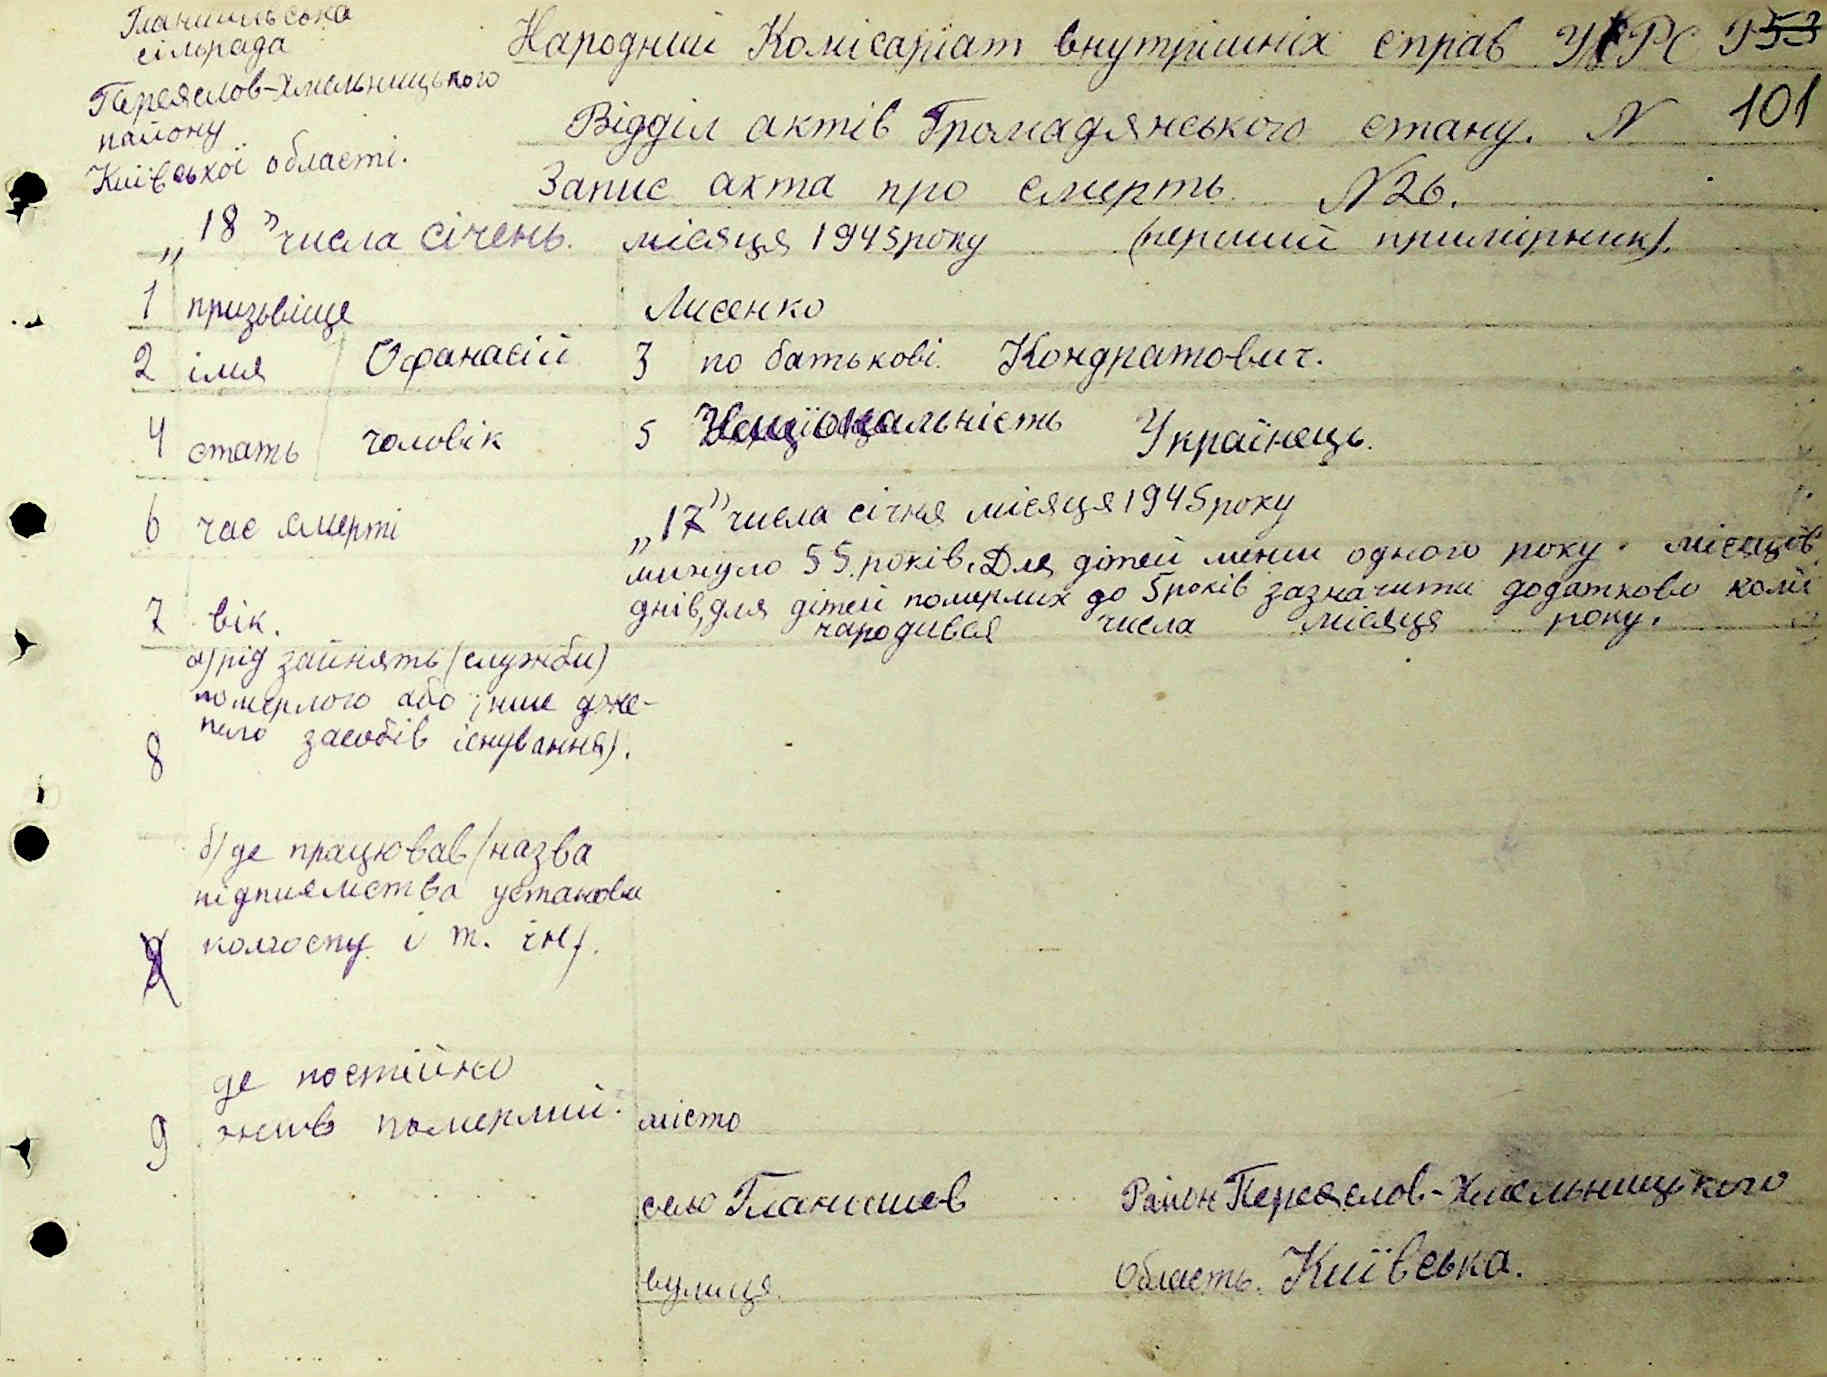 Гланишівська
сільрада
Переяслов-Хмельницького
району
Київської області.
Народний Комісаріат внутрішніх справ УРС
53
Відділ актів Громадянського стану. N 101
Запис акта про смерть N 26.
„18" числа січень місяця 1945 року (перший примірник).
1 призьвіще Лисенко
2 імя Офанасій 3 по батькові Кондратович.
4 стать чоловік 5 Національність Українець.
6 час смерті „17" числа січня місяця 1945 року
минуло 55 років. Для дітей менш одного року. місяців
7 вік. днів, для дітей померлих до 5 років зазначити додатково коли
народився числа місяця року.
а) рід зайнять (служби)
померлого або інше дже-
рело засобів існування).
8
б) де працював (назва
підприємства установи
колгоспу і т. ін).
де постійно
9 жив померлий. місто
село Гланишев Район Переяслов-Хмельницького
вулиця Область. Київська.